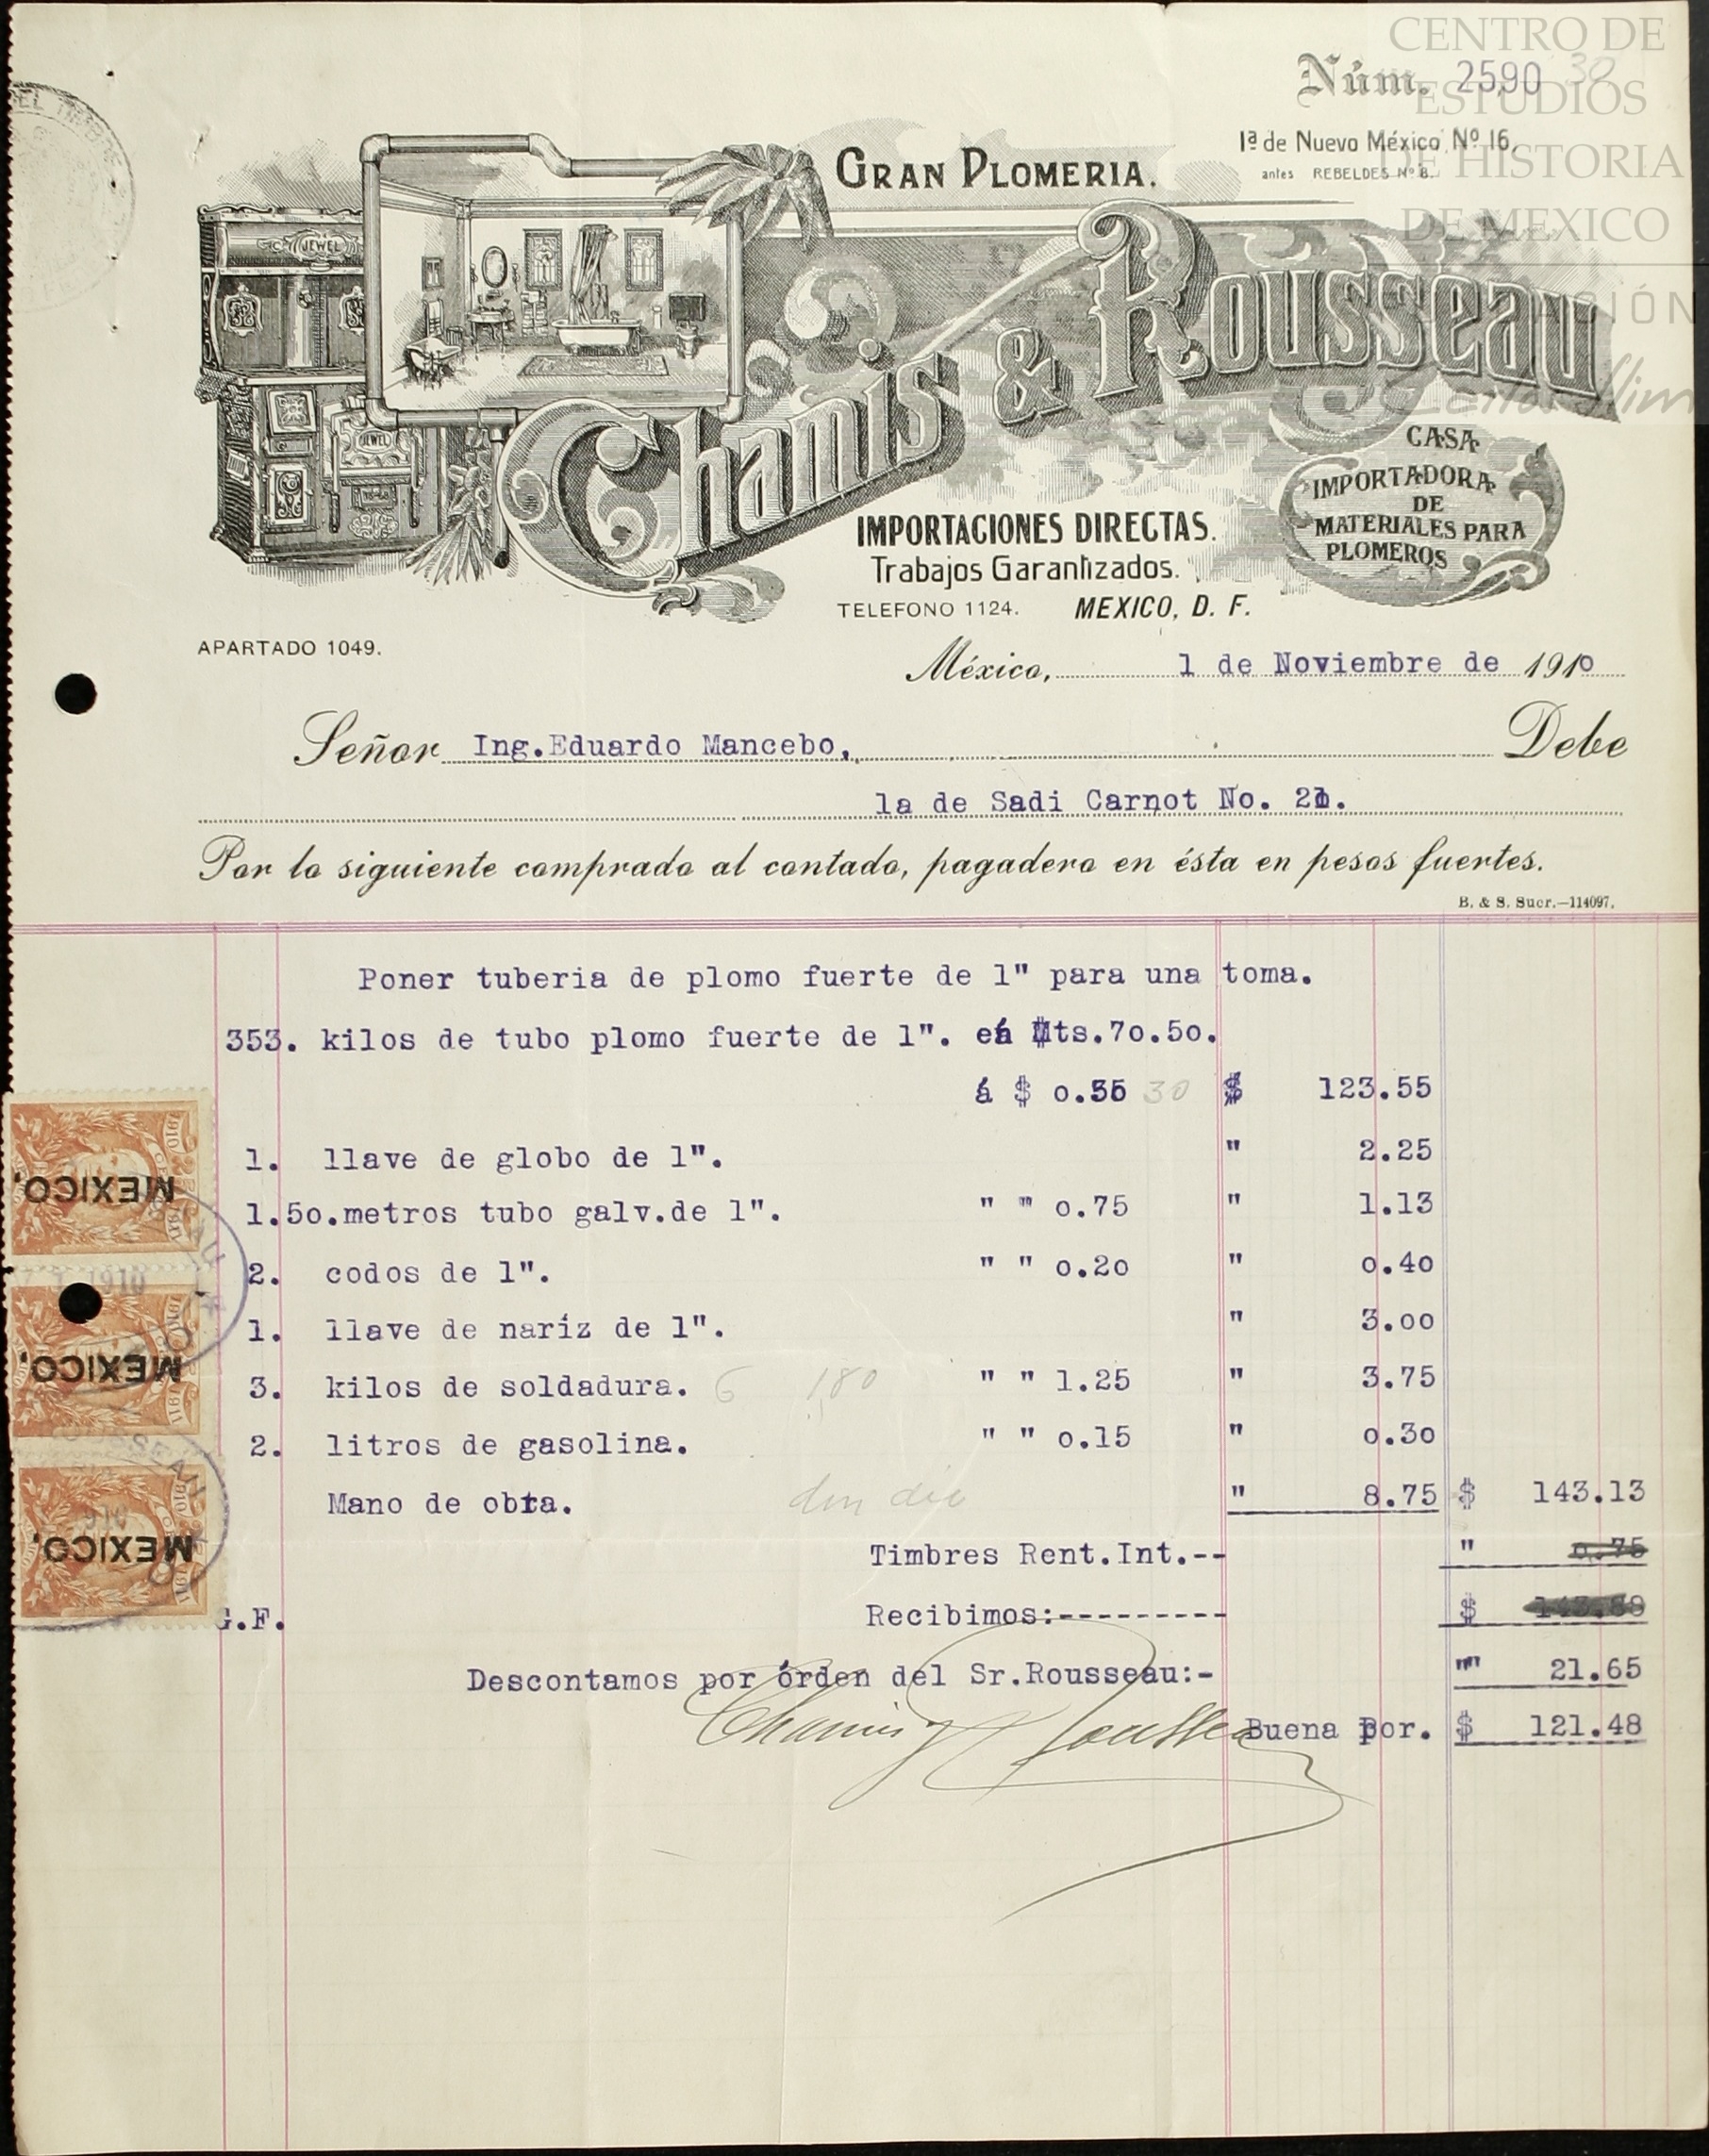 CENTRO DE
ESTUDIOS
DE HISTORIA
DE MEXICO
Núm. 2590 30
1ª de Nuevo México Nº 16.
antes REBELDES Nº 8.
GRAN PLOMERIA.
JEWEL
JEWEL
Chanis & Rousseau
CASA
IMPORTADORA
DE
MATERIALES PARA
PLOMEROS
IMPORTACIONES DIRECTAS.
Trabajos Garantizados.
TELEFONO 1124. MEXICO, D. F.
APARTADO 1049.
México, 1 de Noviembre de 1910
Señor Ing.Eduardo Mancebo, Debe
1a de Sadi Carnot No. 21.
Por lo siguiente comprado al contado, pagadero en ésta en pesos fuertes.
B. & S. Sucr.—114097.
Poner tuberia de plomo fuerte de 1" para una toma.
353. kilos de tubo plomo fuerte de 1". Mts.70.50.
á $ 0.35 30 $ 123.55
1. llave de globo de 1". " 2.25
1.50.metros tubo galv.de 1". " " 0.75 " 1.13
2. codos de 1". " " 0.20 " 0.40
1. llave de nariz de 1". " 3.00
3. kilos de soldadura. 6 180 " " 1.25 " 3.75
2. litros de gasolina. " " 0.15 " 0.30
Mano de obra. " 8.75 $ 143.13
Timbres Rent.Int.-- " 0.75
G.F. Recibimos:--------- $
Descontamos por órden del Sr.Rousseau:- "" 21.65
Chanis & Rousseau
Buena por. $ 121.48
MEXICO,
1910
MEXICO,
MEXICO,